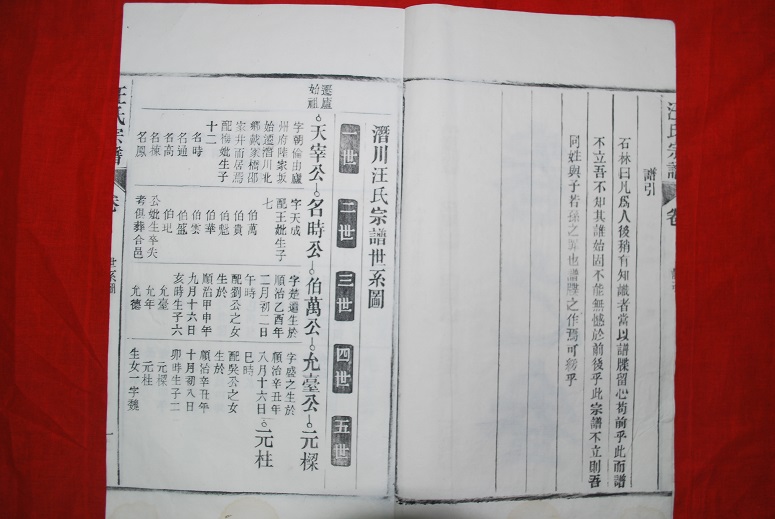 汪氏宗譜
卷
譜引
石林曰凡爲人後稍有知識者當以譜牒留心苟前乎此而譜
不立吾不知其譜始固不能無憾於前後乎此宗譜不立則吾
同姓與子若孫之罪也譜牒之作焉可緩乎
潛川汪氏宗譜世系圖
一世 二世 三世 四世 五世
遷廬始祖
天宰公 名時公 伯萬公 允臺公 元樑
字朝倫由廬 字天成 字楚道生於 字盛之生於 元柱
州府陸家坂 配王妣生子 順治乙酉年 順治辛丑年
始遷潛川北 七 二月初二日 八月十六日
鄉戴家橋邵 伯萬 午時 巳時
家井而居焉 伯貴 配劉公之女 配吳公之女
配梅妣生子 伯魁 生於 生於
十二 伯華 順治甲申年 順治辛丑年
名時 伯榮 九月十六日 十月初入日
名通 伯盛 亥時生子六 卯時生子二
名高 伯 允臺 元樑
名棟 公妣生卒失 允年 元柱
名鳳 考俱葬合邑 允德 生女一字魏
汪氏宗譜
卷
世系圖
一